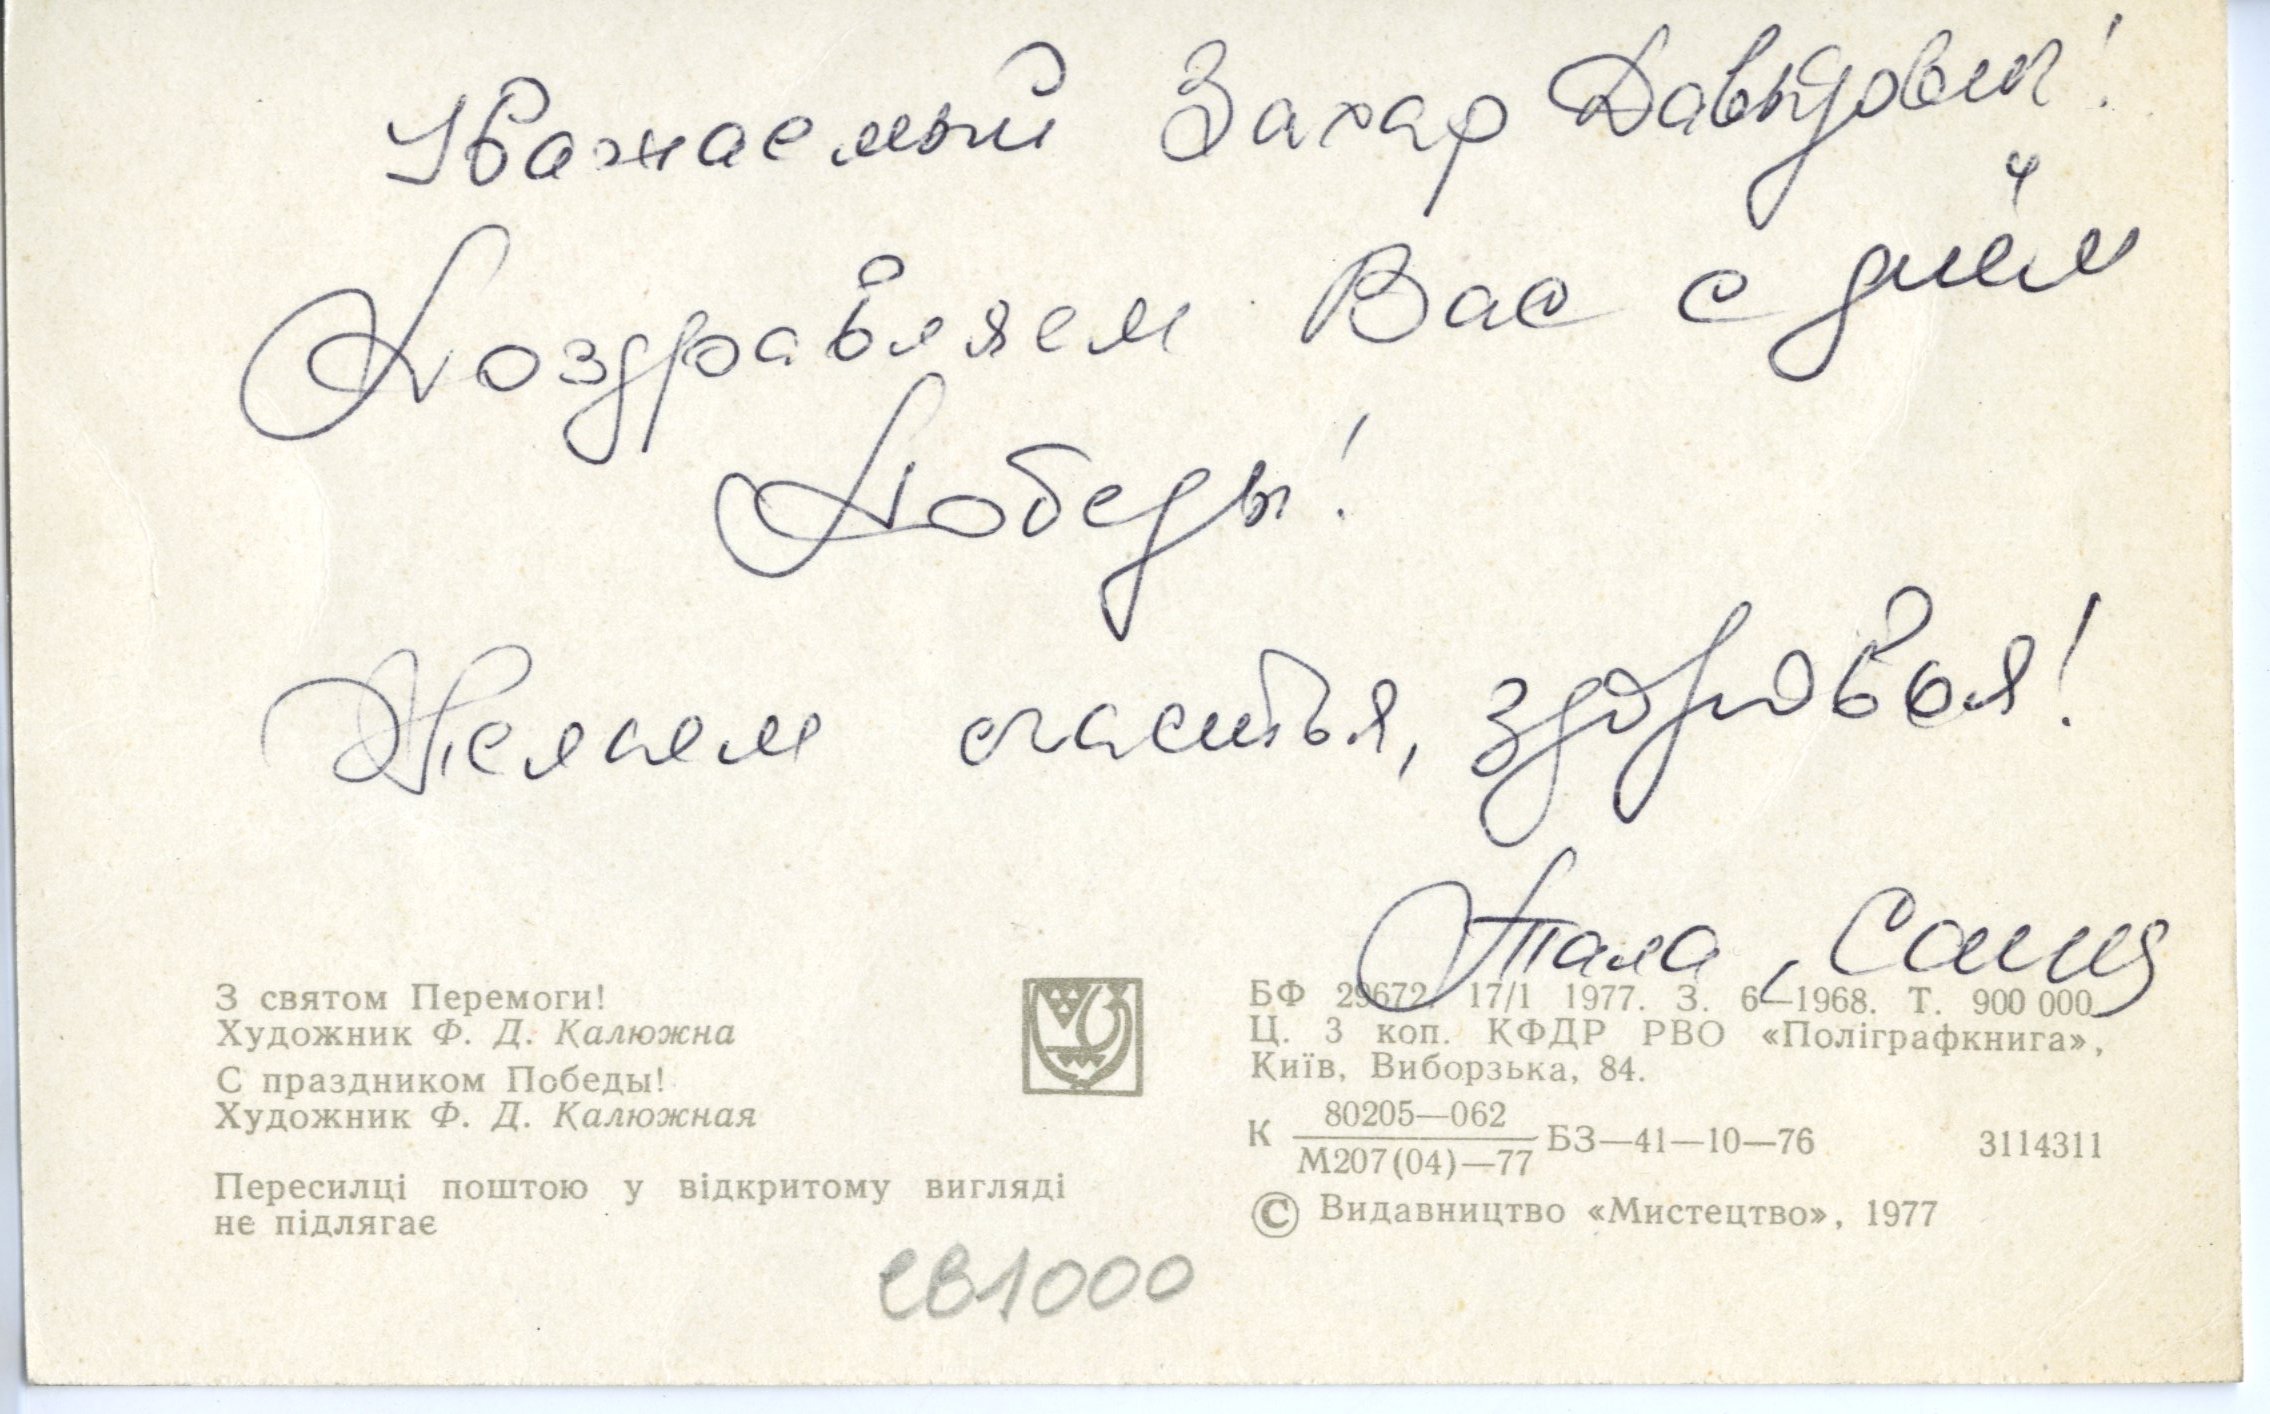 Уважаемый Захар Давыдович!
Поздравляем Вас с днём
Победы!
Желаем счастья, здоровья!
Алла, Саша
З святом Перемоги!
Художник Ф. Д. Калюжна
С праздником Победы!
Художник Ф. Д. Калюжная
Пересилці поштою у відкритому вигляді
не підлягає
БФ 29672. 17/1 1977. З. 6—1968. Т. 900 000.
Ц. 3 коп. КФДР РВО «Поліграфкнига»,
Київ, Виборзька, 84.
К 80205—062
М207(04)—77 БЗ—41—10—76 3114311
© Видавництво «Мистецтво», 1977
ев1000